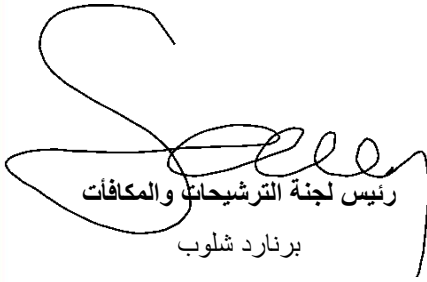 رئيس لجنة الترشيحات والمكافأت
برنارد شلوب